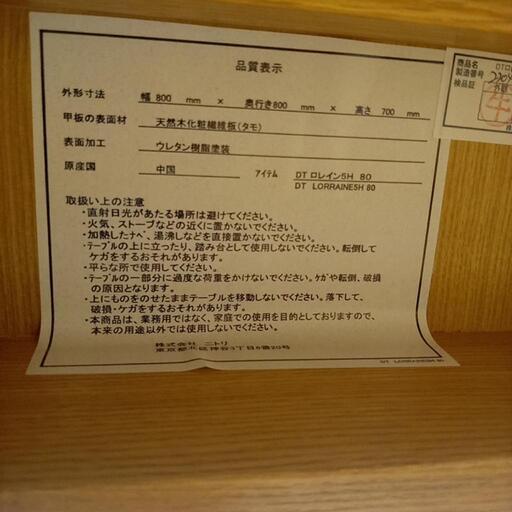 品質表示
外形寸法 幅 800 mm × 奥行き800 mm × 高さ 700 mm
甲板の表面材 天然木化粧繊維板(タモ)
表面加工 ウレタン樹脂塗装
原産国 中国 アイテム DT ロレイン5H 80
DT LORRAINE5H 80
取扱い上の注意
・直射日光があたる場所は避けてください。
・火気、ストーブなどの近くに置かないでください。
・加熱したナベ、湯沸しなどを直接置かないでください。
・テーブルの上に立ったり、踏み台として使用しないでください。転倒して
ケガをするおそれがあります。
・平らな所で使用してください。
・テーブルの一部分に過度な荷重をかけないでください。ケガや転倒、破損
の原因となります。
・上にものをのせたままテーブルを移動しないでください。落下して、
破損・ケガをするおそれがあります。
・本商品は、業務用ではなく、家庭での使用を目的としておりますので、
本来の用途以外では使用しないでください。
株式会社 ニトリ
東京都北区神谷3丁目6番20号
DT LORRAINE5H 80
商品名 DTロ
製造番号
検品証 外観